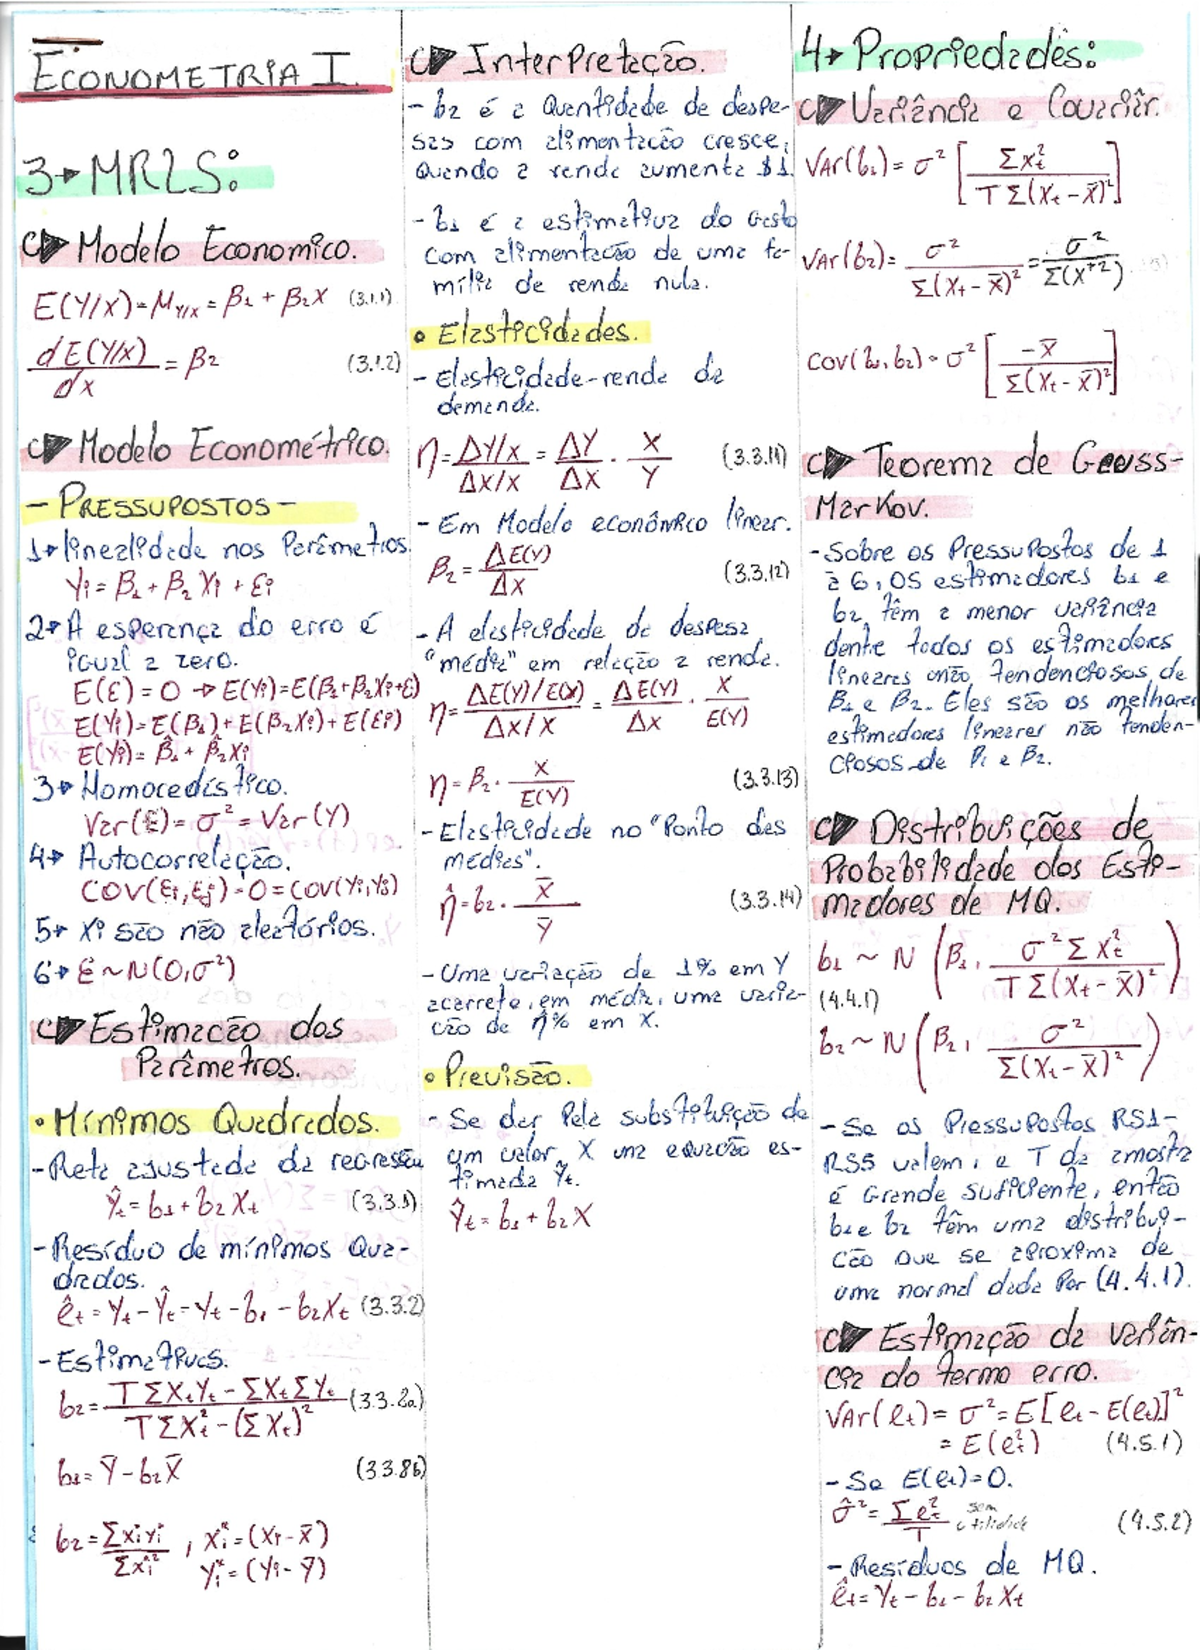 ECONOMETRIA I.
3→MRLS:
Modelo Economico.
E(Y/x) = μY/x = β1 + β2X (3.1.1)
dE(Y/x)/dx = β2 (3.1.2)
Modelo Econométrico.
- PRESSUPOSTOS -
1→ linealidade nos Parâmetros.
Yi = β1 + β2 Xi + εi
2→ A esperança do erro é
igual a zero.
E(ε) = 0 → E(Yi) = E(β1+β2Xi+ε)
E(Yi) = E(β1) + E(β2Xi) + E(εi)
E(Yi) = β̂1 + β̂2Xi
3→ Homocedástico.
Var(ε) = σ² = Var(Y)
4→ Autocorrelação.
COV(εi,εj) = 0 = COV(Yi,Yj)
5→ Xi são não aleatórios.
6→ ε ~ N(0,σ²)
Estimação dos
Parâmetros.
• Mínimos Quadrados.
- Reta ajustada da regressão
Ŷt = b1 + b2 Xt (3.3.1)
- Resíduo de mínimos Qua-
drados.
êt = Yt - Ŷt = Yt - b1 - b2Xt (3.3.2)
- Estimativas.
b2 = TΣXtYt - ΣXtΣYt / TΣXt² - (ΣXt)² (3.3.8a)
b1 = Ȳ - b2X̄ (3.3.8b)
b2 = Σxi*yi* / Σxi*² , xi* = (Xi - X̄)
yi* = (Yi - Ȳ)
Interpretação.
- b2 é a Quantidade de despe-
sas com alimentação cresce,
Quando a renda aumenta $1.
- b1 é a estimativa do Gasto
com alimentação de uma fa-
mília de renda nula.
• Elasticidades.
- Elasticidade-renda da
demanda.
η = ΔY/x / Δx/x = ΔY/ΔX · X/Y (3.3.11)
- Em Modelo econômico linear.
β2 = ΔE(Y)/Δx (3.3.12)
- A elasticidade da despesa
"média" em relação a renda.
η = ΔE(Y)/E(x) / Δx/X = ΔE(Y)/Δx · X/E(Y)
η = β2 · X/E(Y) (3.3.13)
- Elasticidade no "Ponto das
médias".
η̂ = b2 · X̄/Ȳ (3.3.14)
- Uma variação de 1% em Y
acarreta, em média, uma varia-
cão de η̂% em X.
• Previsão.
- Se dar Pela substituição de
um valor X una equação es-
timada Ŷt.
Ŷt = b1 + b2X
4→ Propriedades:
Variância e Covariâr.
VAr(b1) = σ² [ΣXt² / TΣ(Xt - X̄)²]
VAr(b2) = σ² / Σ(Xt - X̄)² = σ² / Σ(X*²)
COV(b1,b2) = σ² [-X̄ / Σ(Xt - X̄)²]
Teorema de Gauss-
Markov.
- Sobre os Pressupostos de 1
à 6, OS estimadores b1 e
b2 têm a menor variância
dente todos os estimadores
lineares não tendenciosos de
β1 e β2. Eles são os melhores
estimadores linearer não tenden-
ciosos de β1 e β2.
Distribuições de
Probabilidade dos Esti-
madores de MQ.
b1 ~ N (β1, σ²ΣXt² / TΣ(Xt - X̄)²)
(4.4.1)
b2 ~ N (β2, σ² / Σ(Xt - X̄)²)
- Se os Pressupostos RS1-
RS5 valem, e T da amosta
é Grande suficiente, então
b1 e b2 têm uma distribui-
cão que se aproxima de
uma normal dada Por (4.4.1).
Estimação da variân-
cia do termo erro.
VAr(et) = σ² = E[et - E(et)]²
= E(et²) (4.5.1)
- Se E(et)=0.
σ̂² = Σet²/T sem utilidade (4.5.2)
- Resíduos de MQ.
êt = Yt - b1 - b2 Xt